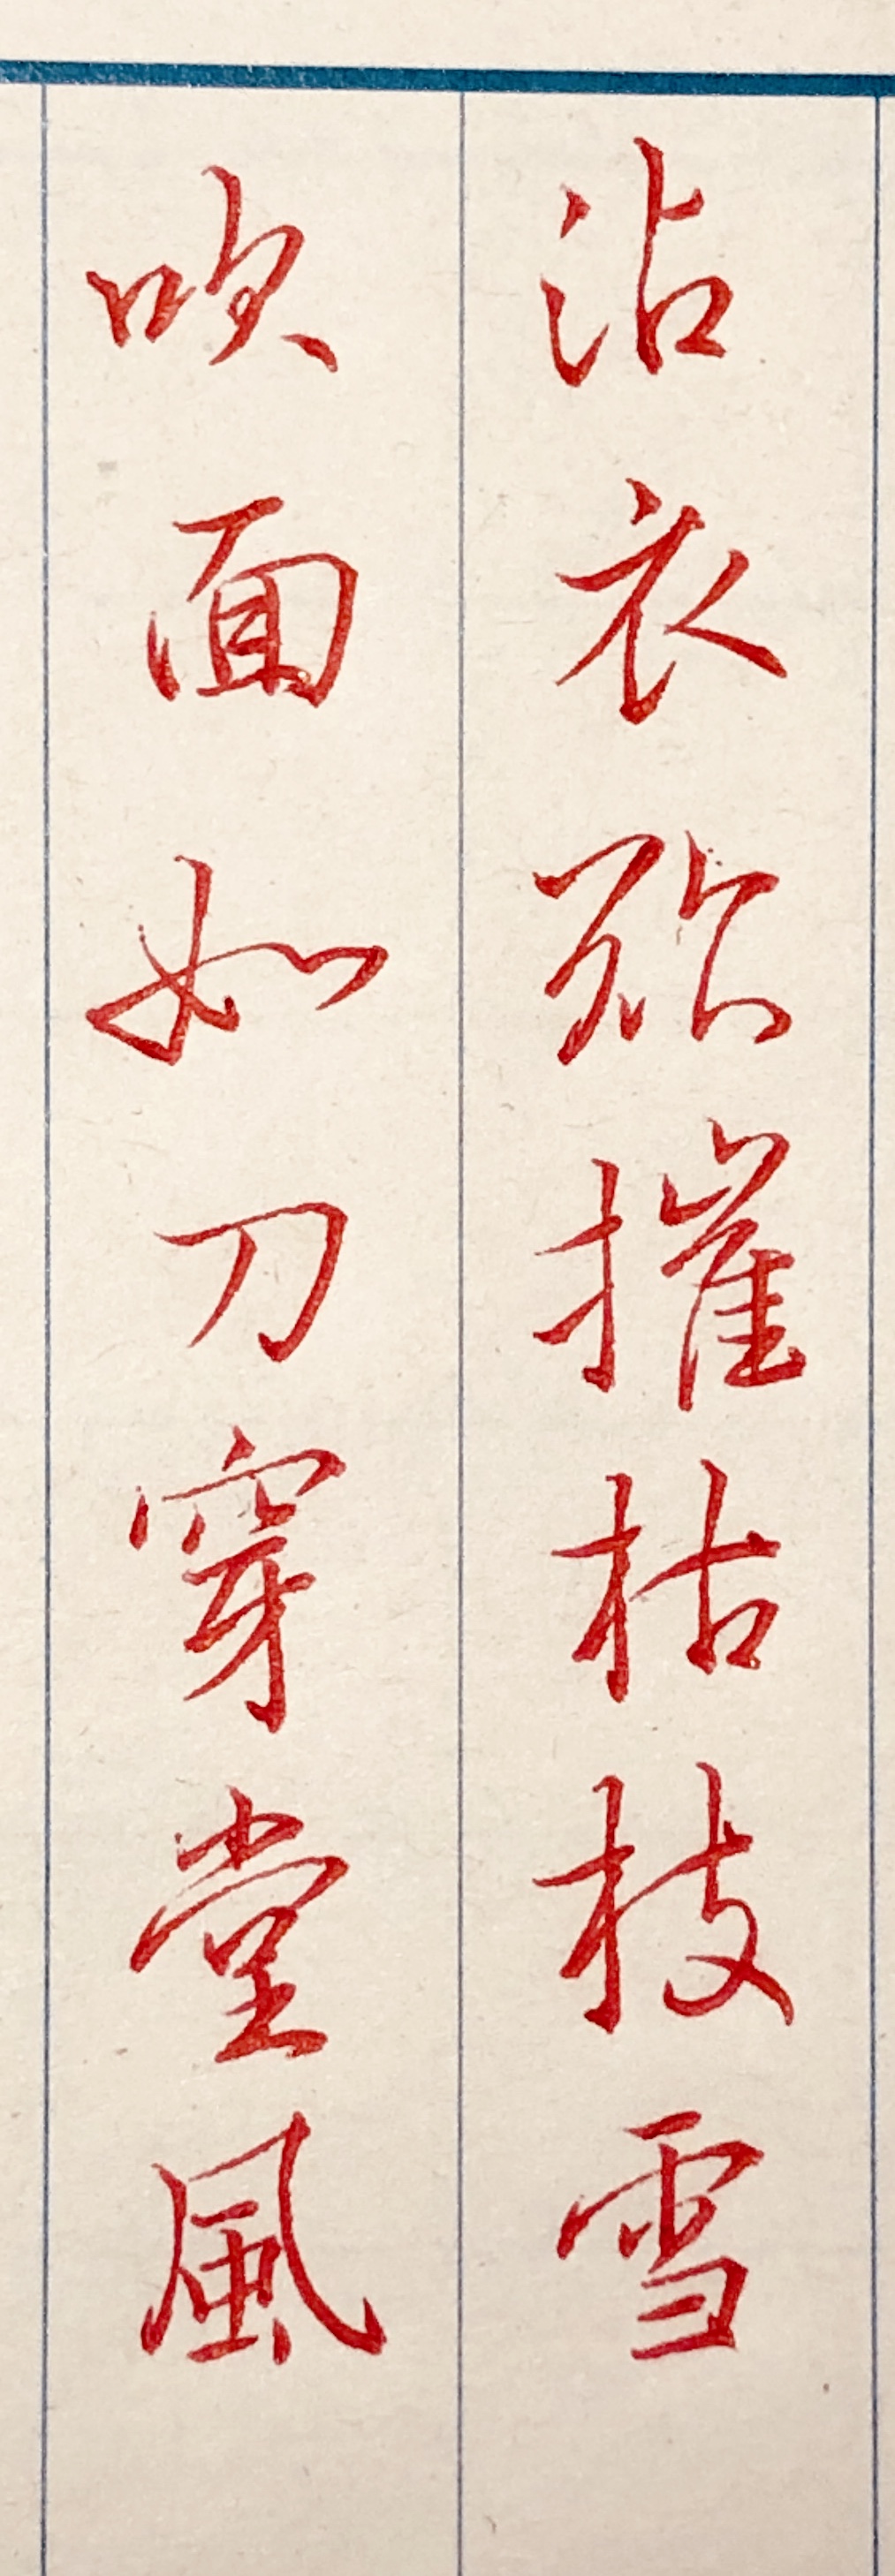 沾衣欲摧枯枝雪
吹面如刀穿堂風